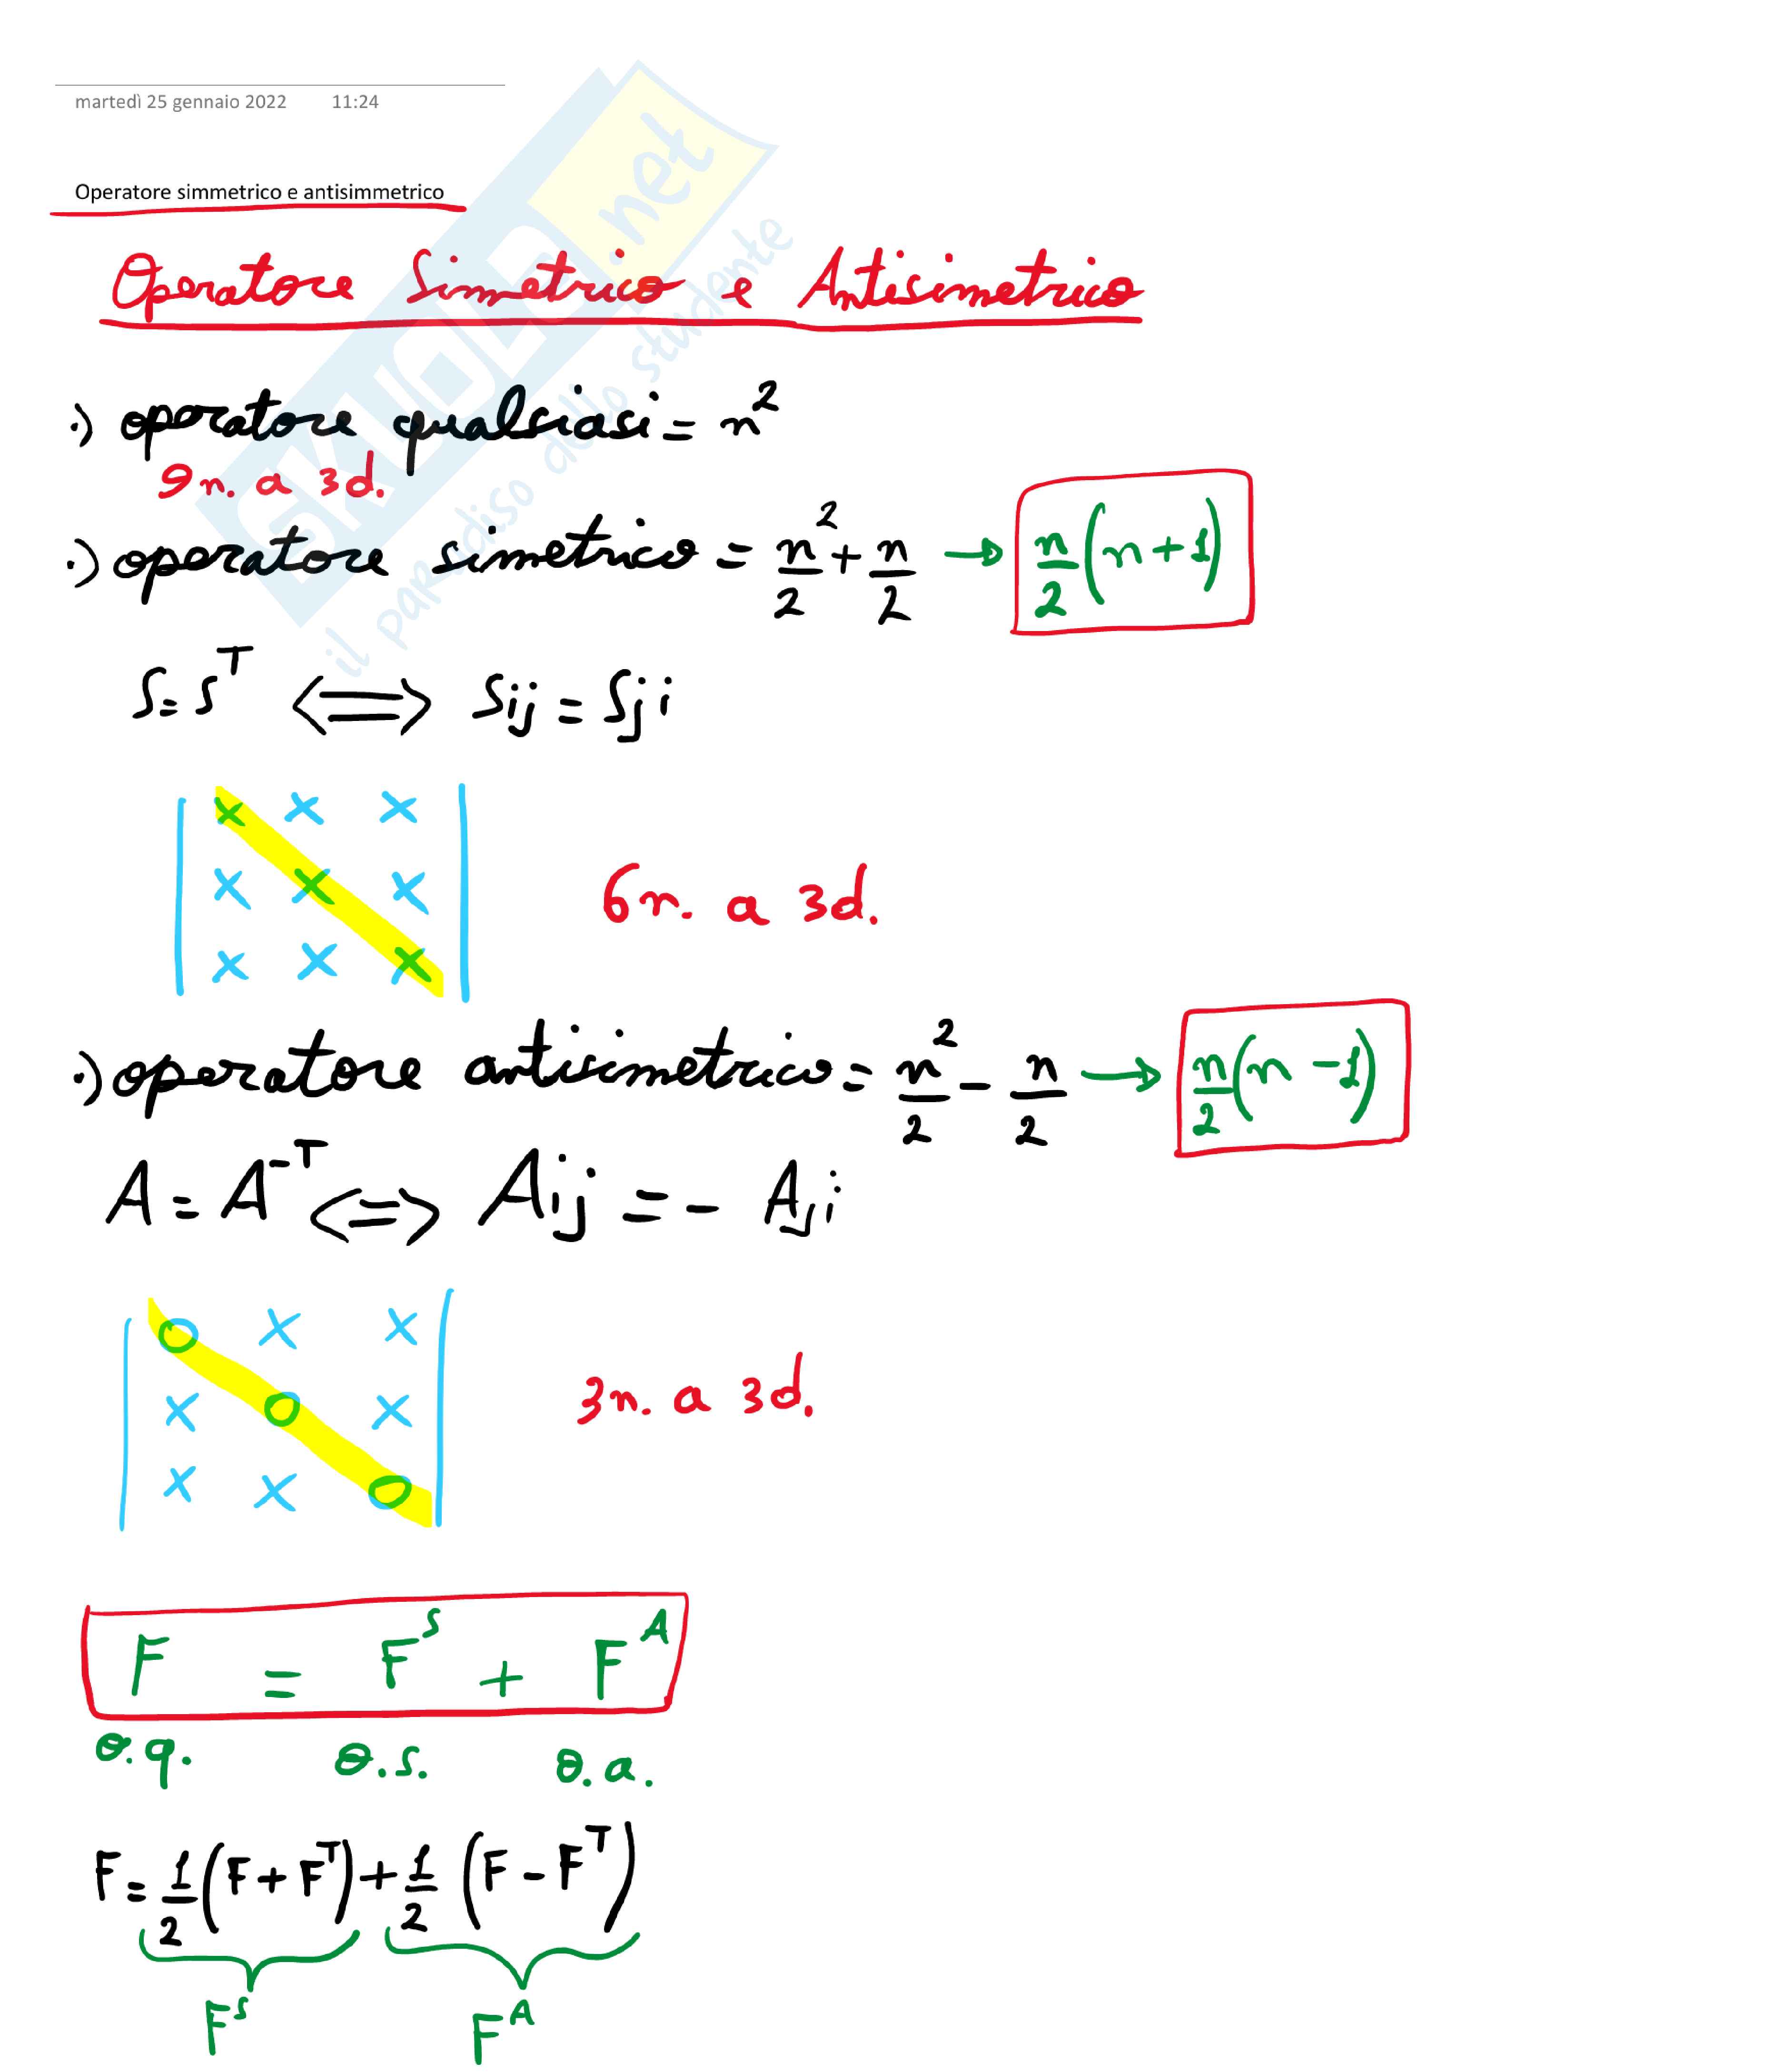 martedì 25 gennaio 2022 11:24
Operatore simmetrico e antisimmetrico
Operatore Simmetrico e Antisimetrico
·) operatore qualsiasi = n²
9 n. a 3d.
·) operatore simetrico = n²/2 + n/2 → n/2 (n+1)
S = S^T ⟺ Sij = Sji
x x x
x x x
x x x
6 n. a 3d.
·) operatore antisimetrico = n²/2 − n/2 → n/2 (n −1)
A = A^-T ⟺ Aij = − Aji
0 x x
x 0 x
x x 0
3 n. a 3d.
F = F^S + F^A
o.q. o.s. o.a.
F = 1/2 (F + F^T) + 1/2 (F − F^T)
F^S F^A
SKUOLA.net
il paradiso dello studente